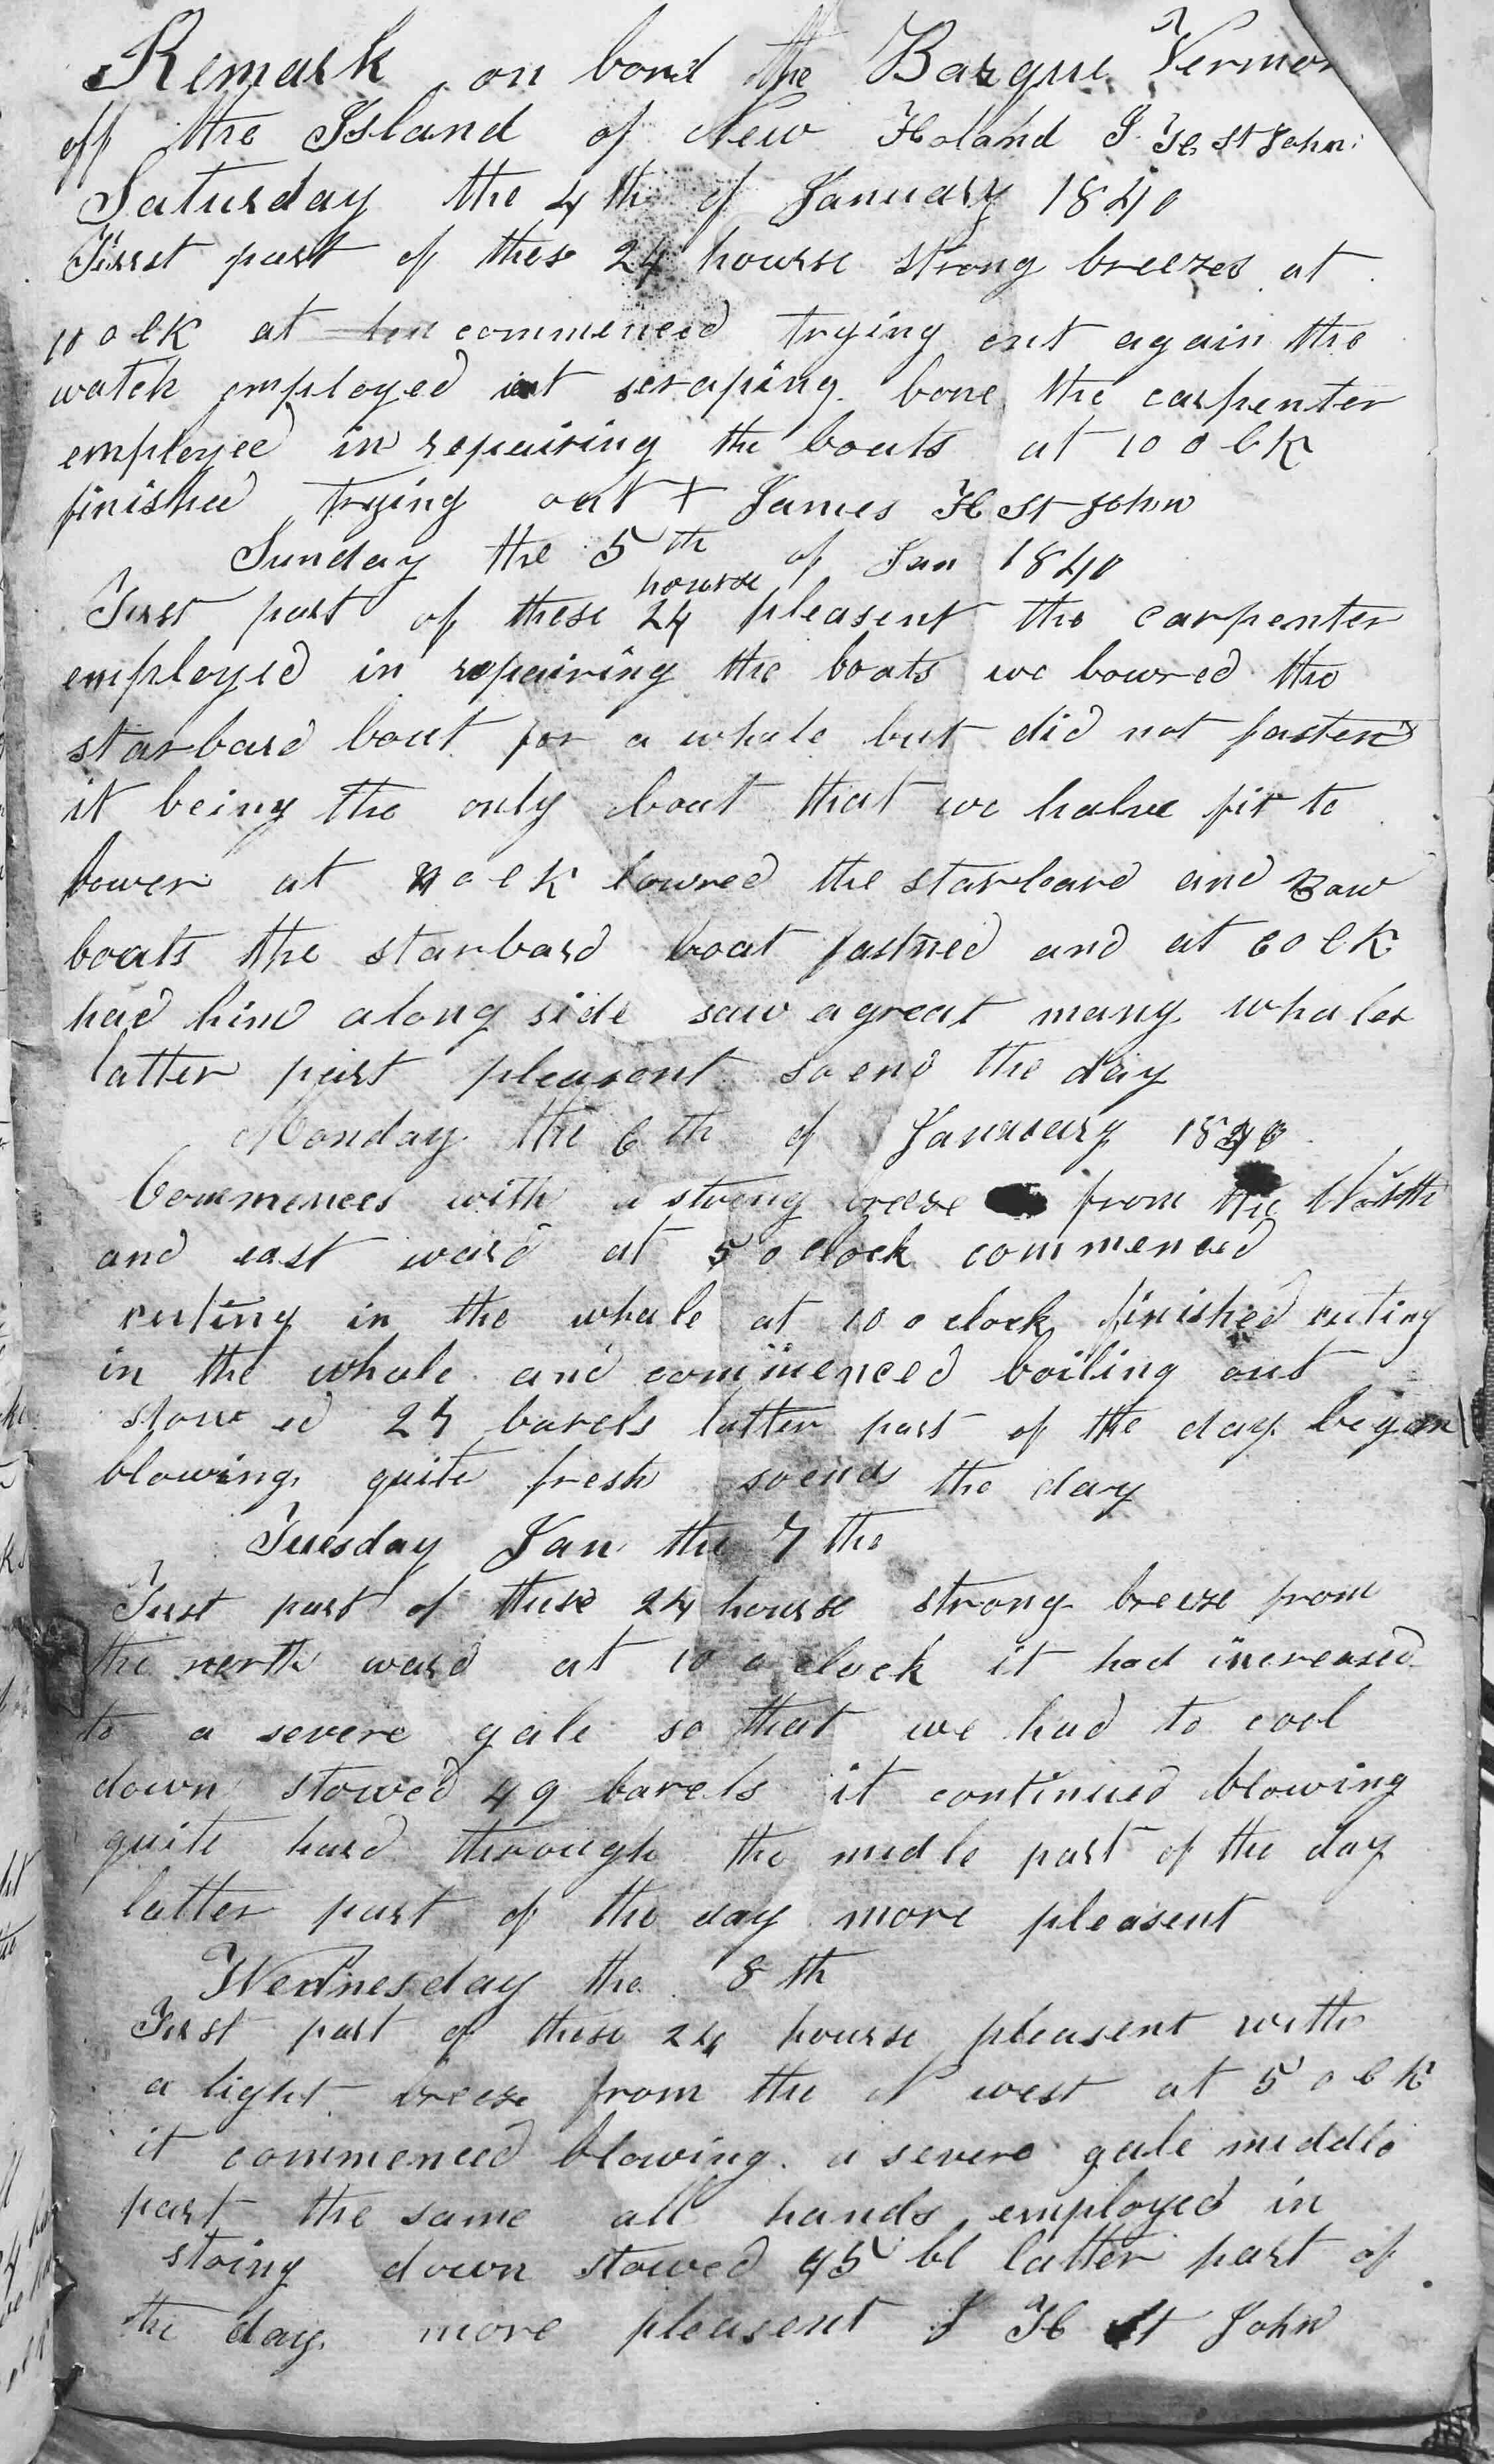 Remark on bord the Barque Vermon
off the Island of New Holand J. H St John
Saturday the 4th of January 1840
First part of thes 24 hourse strong breezes at
10 o lK at commenced trying out again the
watch employed at scraping bone the carpenter
employed in repairing the boats at 10 o clK
finished trying out + James H St John
Sunday the 5th of Jan 1840
hourse
First part of these 24 pleasent the carpenter
employed in repairing the boats we bowred the
starbard boat for a whale but did not fasten
it being the only boat that we halve fit to
bower at o clK lowred the starboard and Bow
boats the starbard boat fastned and at 6 o clK
had him along side saw a great many whales
latter part pleasent so end the day
Monday the 6th of January 1840
Commences with a strong breese from the North
and east ward at 5 o clock commenced
cutting in the whale at 10 o clock finished cuting
in the whale and commenced boiling out
stowed 27 barels latter part of the day began
blowing quite fresh so ends the day
Tuesday Jan the 7 the
First part of these 24 hourse strong breeze from
the north ward at 10 o clock it had increased
to a severe gale so that we had to cool
down stowed 49 barels it continued blowing
quite hard through the midle part of the day
latter part of the day more pleasent
Wednesday the 8th
First part of these 24 hourse pleasent with
a light breese from the N west at 5 o clK
it commenced blowing a severe gale middle
part the same all hands employed in
stoing down stowed 95 bl latter part of
the day more pleasent J H St John